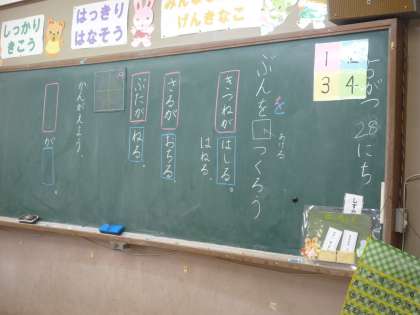 しっかり
きこう
はっきり
はなそう
げんきなこ
1 2
3 4
がつ 28にち
ぶんを つくろう
を
あける
きつねが はしる。
はねる。
さるが おちる。
ぶたが ねる。
かんがえよう。
が 。